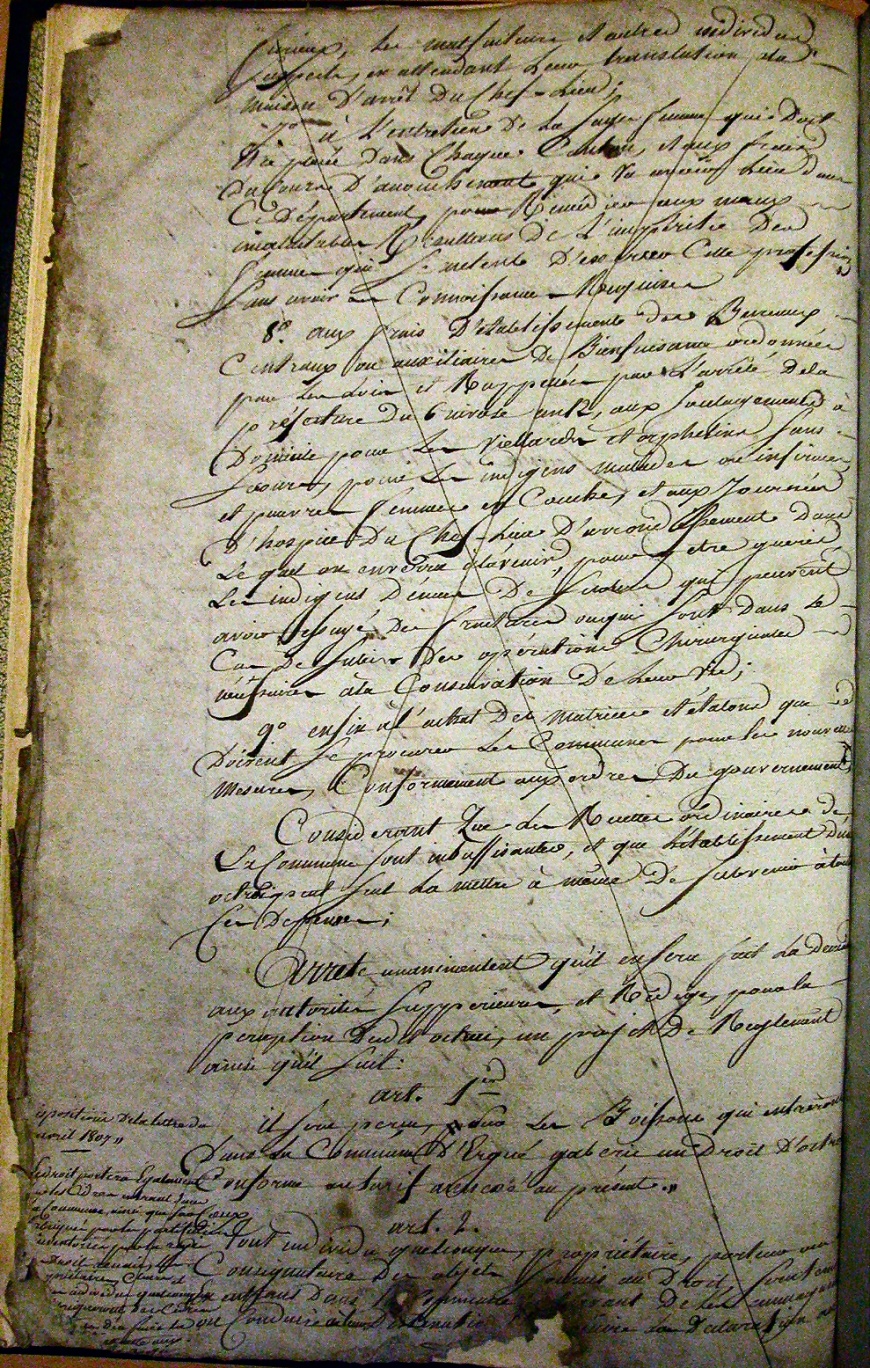 furieux, les malfaiteurs et autres individus
suspects, en attendant leur translation à la
maison D'arrêt Du Chef-Lieu;
7º à L'entretien De La Sage femme qui Doit
être placée dans Chaque Canton, et aux frais
Du Cours D'accouchement qui va avoir Lieu dans
Ce Département, pour Remédier aux maux
incalculables Résultans De L'impéritie Des
femmes qui Se mêlent D'exercer Cette profession
Sans avoir les Connoissances Requises
8º aux frais D'etablissements des Bureaux
Centraux ou auxiliaires De Bienfaisance ordonnés
par Les Loix et Rappelés par L'arrêté De la
préfecture du 6 nivose an 12, aux Soulagements à
Domicile pour Les Vieillards et orphelins Sans
Secours, pour Les indigens malades ou infirmes,
et pauvres femmes en Couche, et aux Journées
D'hospice Du Chef-Lieu D'arrondissement Dans
Le quel on enverra à l'avenir, pour y être gueris,
Les indigens Dénués De Secours qui peuvent
avoir essuyé Des fractures ou qui Sont Dans le
Cas De Subir Des opérations Chirurgicales
nécessaires à la Conservation De Leur Vie;
9º enfin à l'achat Des matrices et étalons que
Doivent Se procurer Les Communes pour les nouvelles
mesures, Conformément aux ordres Du gouvernement,
Considerant Que Les Recettes ordinaires de
La Commune Sont insuffisantes, et que L'établissement D'un
octroi peut Seul La mettre à même De Subvenir à tout
Ces Dépenses;
Arrete unanimement qu'il en Sera fait La Demande
aux autorités Supperieures, et Rédige, pour la
perception Dudit octroi, un projet De Reglement
ainsi qu'il Suit:
art. 1er
il Sera perçu, Sur Les Boissons qui entreront
Dans La Commune D'Ergué gaberic un Droit D'octroi
Conforme au tarif annexé au présent.
art. 2.
Tout individu quelconque, propriétaire, porteur ou
Consignataire Des objets Soumis au Droit
entrant Dans La Commune
ou Conduire Destination la Déclaration
De la lettre du
avril 1807
Le droit portera Egalement
sur les Cidres entrant dans
La Commune, ainsi que Sur Ceux
fabriqués